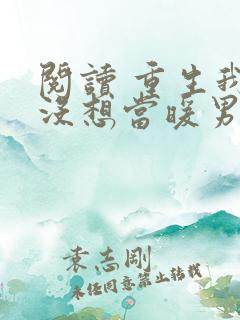 閱讀 重生我
沒想當暖男
袁志剛
未經同意禁止轉載